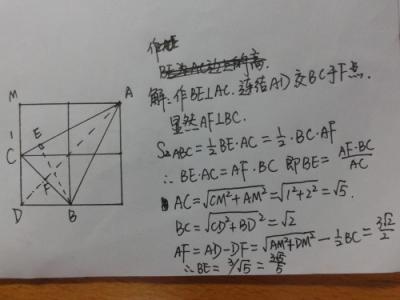 作BE
BE为AC边上的高
解:作BE⊥AC.连结AD交BC于F点.
显然AF⊥BC.
S△ABC=½BE·AC=½·BC·AF
∴BE·AC=AF·BC 即BE=AF·BC/AC
AC=√(CM²+AM²)=√(1²+2²)=√5.
BC=√(CD²+BD²)=√2
AF=AD-DF=√(AM²+DM²)-½BC=3√2/2
∴BE=3/√5=3√5/5
M
A
1
E
C
F
D
B